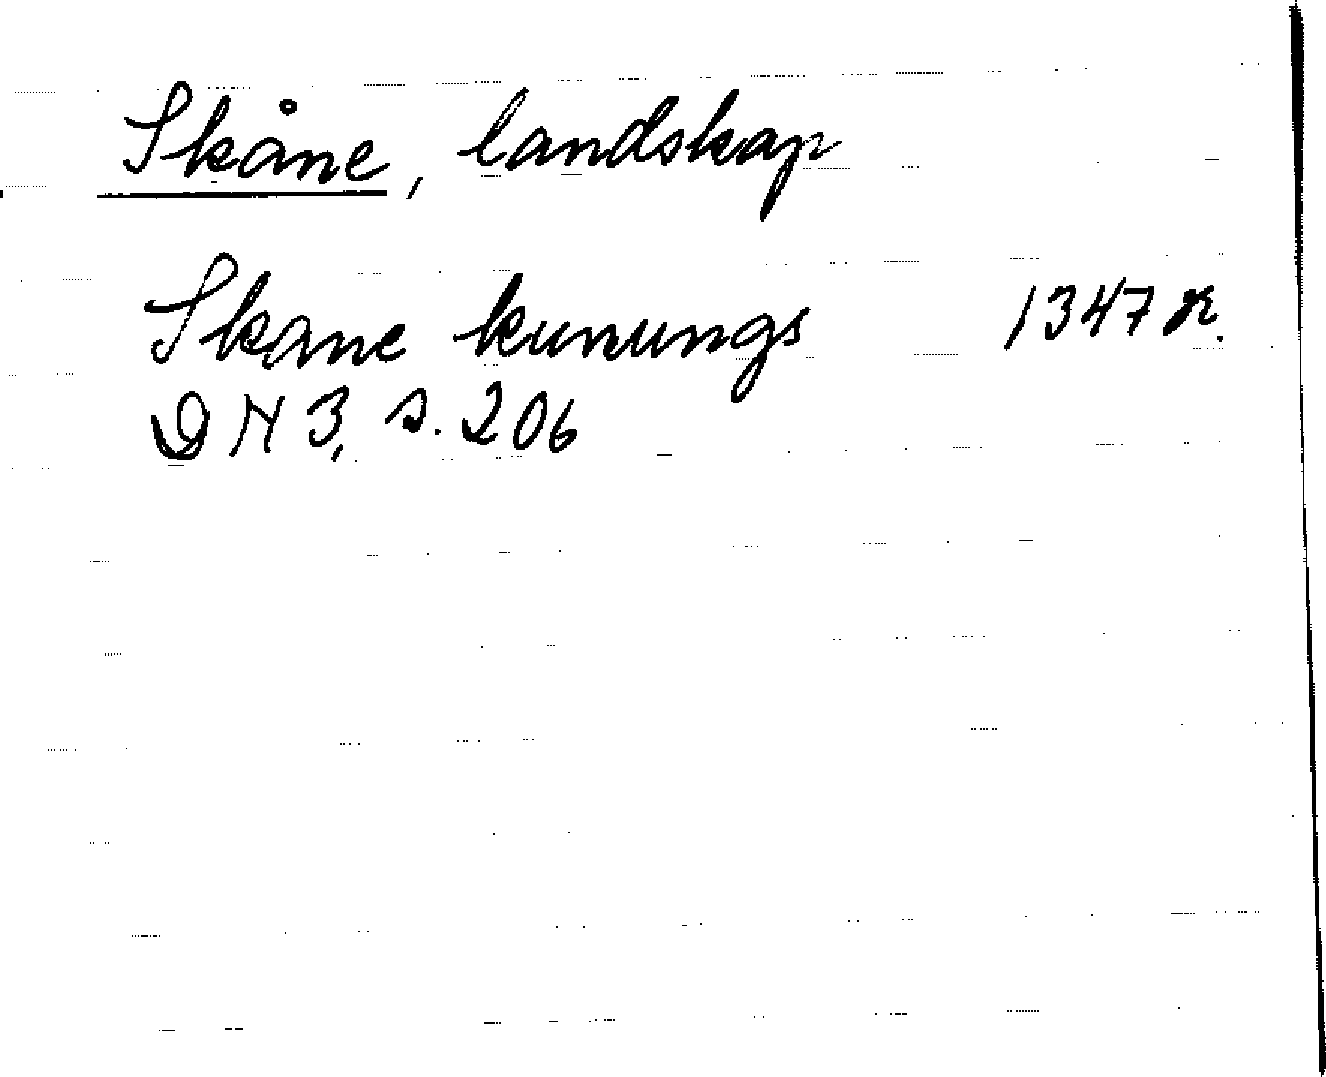 Skåne, landskap
Skane kunungs 1347 R.
DN 3, s. 206